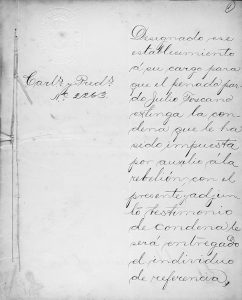 Designado ese
establecimiento
á su cargo para
que el penado par-
do Julio Toscano
extinga la con-
dena que le ha
sido impuesta
por auxilio á la
rebelión con el
presente y adjun
to testimonio
de condena le
será entregado
el individuo
de referencia,
Carl.s y Presid.s
N.º 2263.